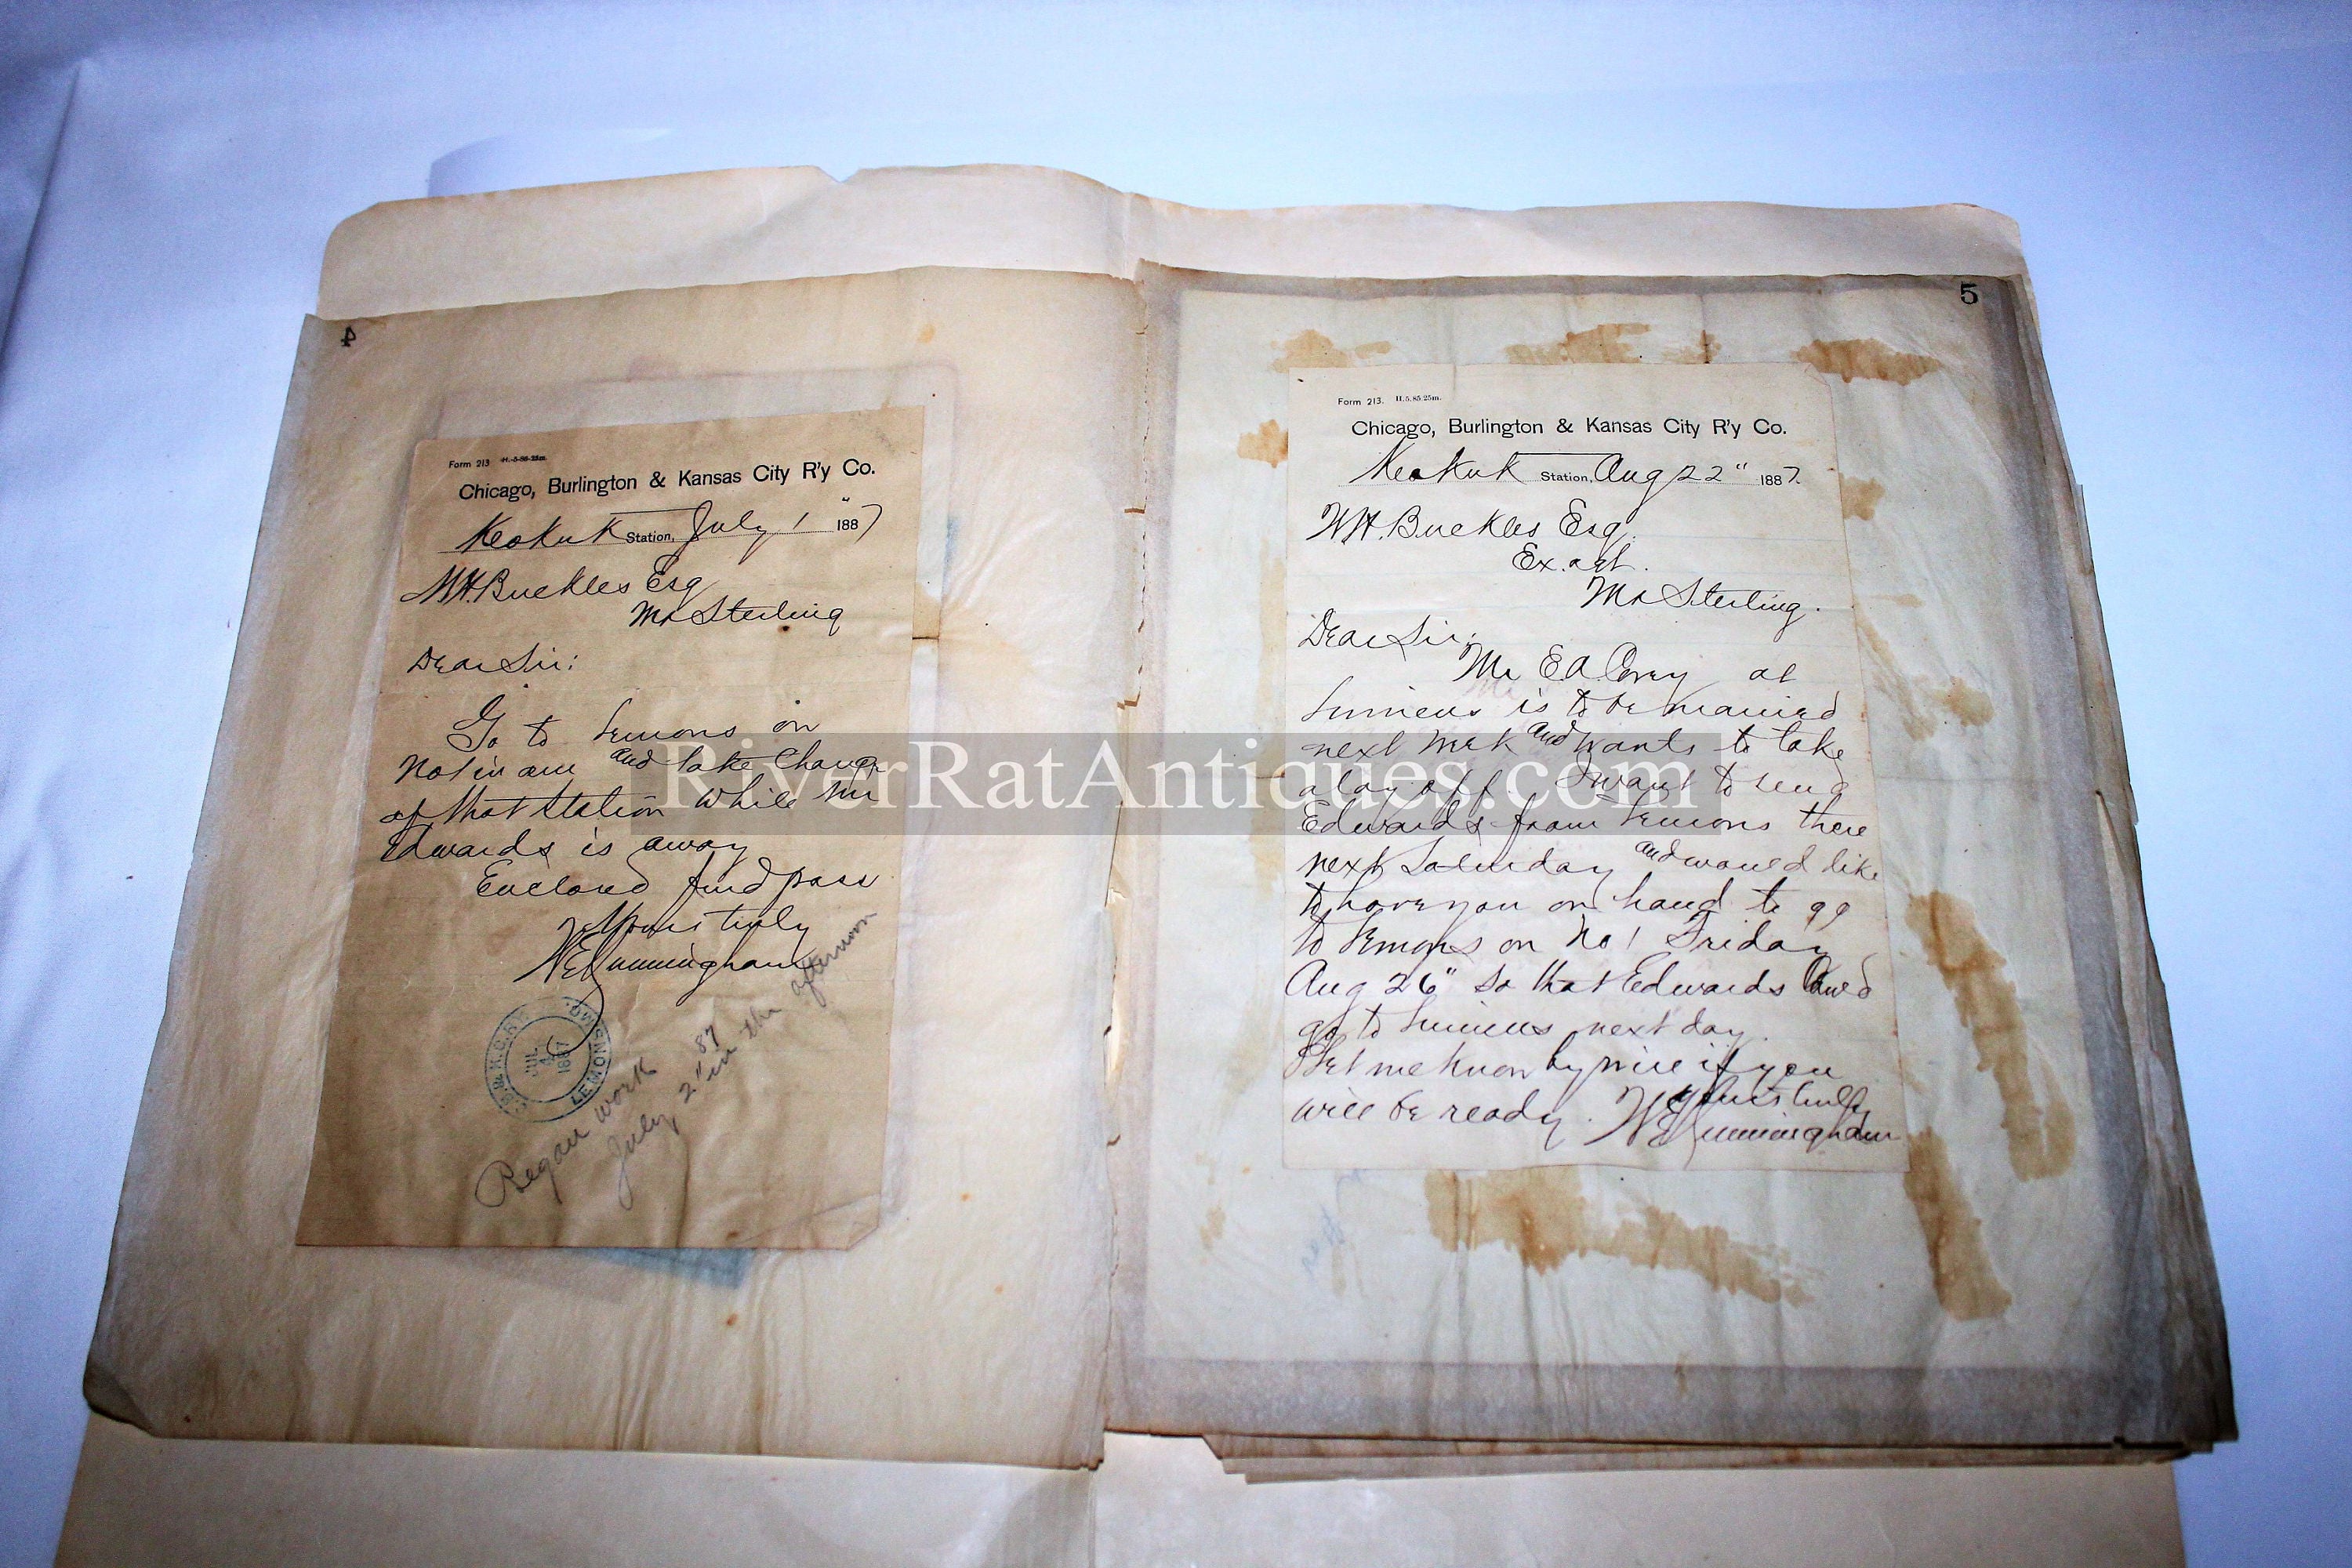 4
Form 213 H.-5-86-25m.
Chicago, Burlington & Kansas City R'y Co.
Keokuk Station, July 1" 1887
W.H. Buckles Esq
Mt Sterling
Dear Sir:
Go to Lemons on
No 1 in am and take charge
of that station while Mr
Edwards is away
Enclosed find pass
Yours truly
WE Cunningham
LEMONS MO.
JUL 1887
Began work
July 2" 87
in the afternoon
5
Form 213. H.5.85.25m.
Chicago, Burlington & Kansas City R'y Co.
Keokuk Station, Aug 22" 1887.
W.H. Buckles Esq.
Ex. agt.
Mt Sterling.
Dear Sir:
Mr E.A. at
is to be married
next week and wants to take
a lay off. I want to send
Edwards from Lemons there
next Saturday and would like
to have you on hand to go
to Lemons on No 1 Friday
Aug 26" so that Edwards could
go to next day.
Let me know by wire if you
will be ready. Yours truly
WE Cunningham
RiverRatAntiques.com